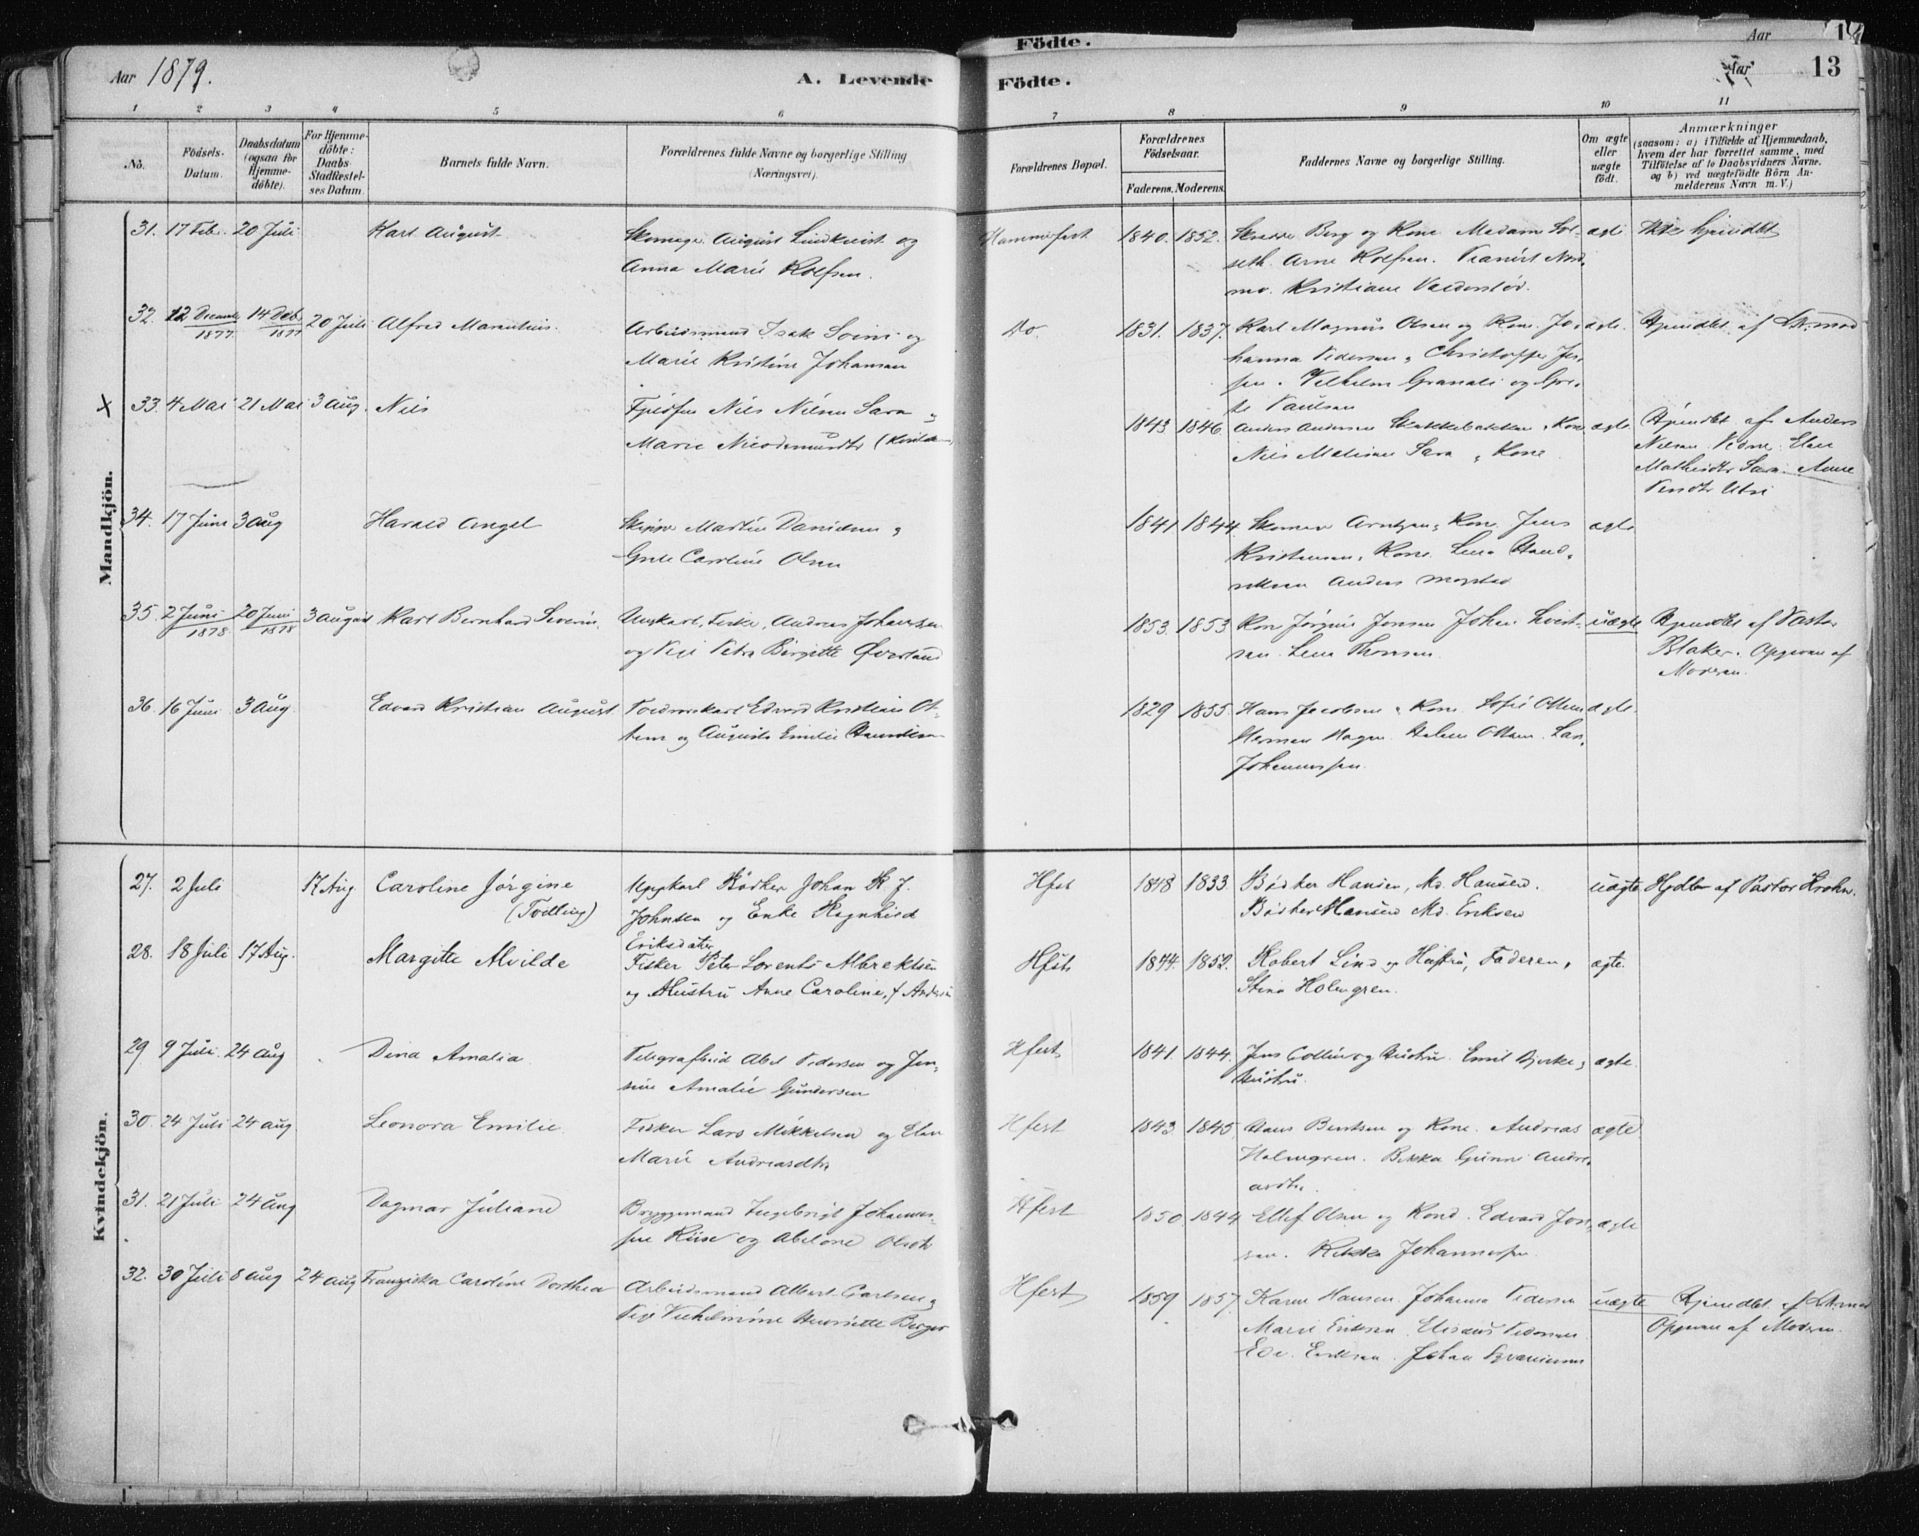 Födte.
Aar
Aar 1879.
A. Levende
Födte.
Aar
13
1 2 3 4 5 6 7 8 9 10 11
No.
Födsels-
Datum.
Daabsdatum
(ogsaa for
Hjemme-
döbte).
For Hjemme-
döbte:
Daabs-
Stadfæstel-
ses Datum.
Barnets fulde Navn.
Forældrenes fulde Navne og borgerlige Stilling
(Næringsvei).
Forældrenes Bopæl.
Forældrenes
Födselsaar.
Faderens. Moderens.
Faddernes Navne og borgerlige Stilling.
Om ægte
eller
uægte
födt.
Anmærkninger
(saasom: a) i Tilfælde af Hjemmedaab,
hvem der har forrettet samme, med
Tilföielse af to Daabsvidners Navne.
og b) ved uægtefödte Börn An-
melderens Navn m. V.)
Mandkjön.
31. 17 Feb. 20 Juli Karl August
Skomager August Lindkvist og
Anna Marie Rolfsen.
Hammerfest 1840. 1852.
Berg og Kone Madam Sol-
seth. Arne Rolfsen.
Kristiane
ægte Ikke hjemdbt
32. 12 Decembr 1877 14 Deb. 1877 20 Juli Alfred Marentius.
Arbeidsmand Isak Soini og
Marie Kristine Johansen
Do. 1831. 1837.
Karl Magnus Olsen og Kone. Jo-
hanna Pedersen, Christoffer Jes-
sen. Vilhelm Granali og Gre-
te Paulsen
ægte. Hjemdbt. af
x 33. 4 Mai 21 Mai 3 Aug. Nils
Nils Nilsen Sara og
Marie Nicodemusdtr
1843 1846
Anders Andersen Skakkebakken, Kone
Nils Mathisen Sara, Kone
ægte Hjemdbt af Anders
Nilsen Vedne. Elen
Mathisdtr Sara. Anne
Utsi
34. 17 Juni 3 Aug Harald Angel
Skipper Martin Danielsen og
Grete Caroline Olsen
1841 1844
Skomager Arntzen, Kone. Jens
Kristensen, Kone. Lena Hend-
riksen Anders
ægte
35. 2 Juni 1878 20 Juni 1878 3 August Karl Bernhard Severin.
Ungkarl, Fisker, Andreas Johansen
og Pige Petra Birgitte Øverland
1853. 1853
Kone Jørgine Jonsen Johan
sen. Lena Thomsen.
uægte Hjemdbt af Pastor
Blaker. Opgiven af
Moderen.
36. 16 Juni 3 Aug. Edvard Kristian August
Edvard Kristian Ot-
tem og Augusta Emilie
1829 1855.
Hans Jacobsen, Kone Sofie Ottem
Herman Hagen. Helene Ottem. Lars
Johannessen.
ægte.
Kvindekjön.
27. 2 Juli 17 Aug Caroline Jørgine
(Tvilling)
Ungkarl Bødker Johan K. J.
Johnsen og Enke Ragnhild
Eriksdatter
Hfest 1848 1833
Bødker Hansen, Md. Hansen.
Bødker Hansen Md. Eriksen
uægte Hjdbt af Pastor Krohn.
28. 18 Juli 17 Aug. Margitte Alvilde
Fisker Peter Lorents Albrektsen
og Hustru Anne Caroline, f Andersen
Hfest 1844. 1852.
Robert Lind og Hustru, Faderen,
Stina Holmgren.
ægte.
29 9 Juli 24 Aug Dina Amalia
Telegrafbud Abel Pedersen og Jen-
sine Amalie Gundersen
Hfest 1841. 1844.
Jens Collin og Hustru. Emil Bjerke,
Hustru.
ægte.
30. 24 Juli 24 Aug Leonora Emilie
Fisker Lars Mikkelsen og Elen
Marie Andreasdtr
Hfest 1843 1845
Hans Bentsen og Kone. Andreas
Holmgren. Bekka Gunne Andre-
asdtr.
ægte
31. 21 Juli 24 Aug Dagmar Juliane
Bryggemand Ingebrigt Johannes-
sen Riise og Abelone Olsdtr
Hfest 1850 1844
Ellef Olsen og Kone. Edvard Jon-
sen. Rebekka Johannessen
ægte
32. 30 Juli 8 Aug 24 Aug Franziska Caroline Dorthea
Arbeidsmand Albert Carlsen og
Pige Vilhelmine Henriette Berger
Hfest 1859 1857.
Karen Hansen. Johanna Pedersen
Marie Eriksen. Elisæus Pedersen
Eriksen. Johan
uægte Hjemdbt. af
Opgiven af Moderen.